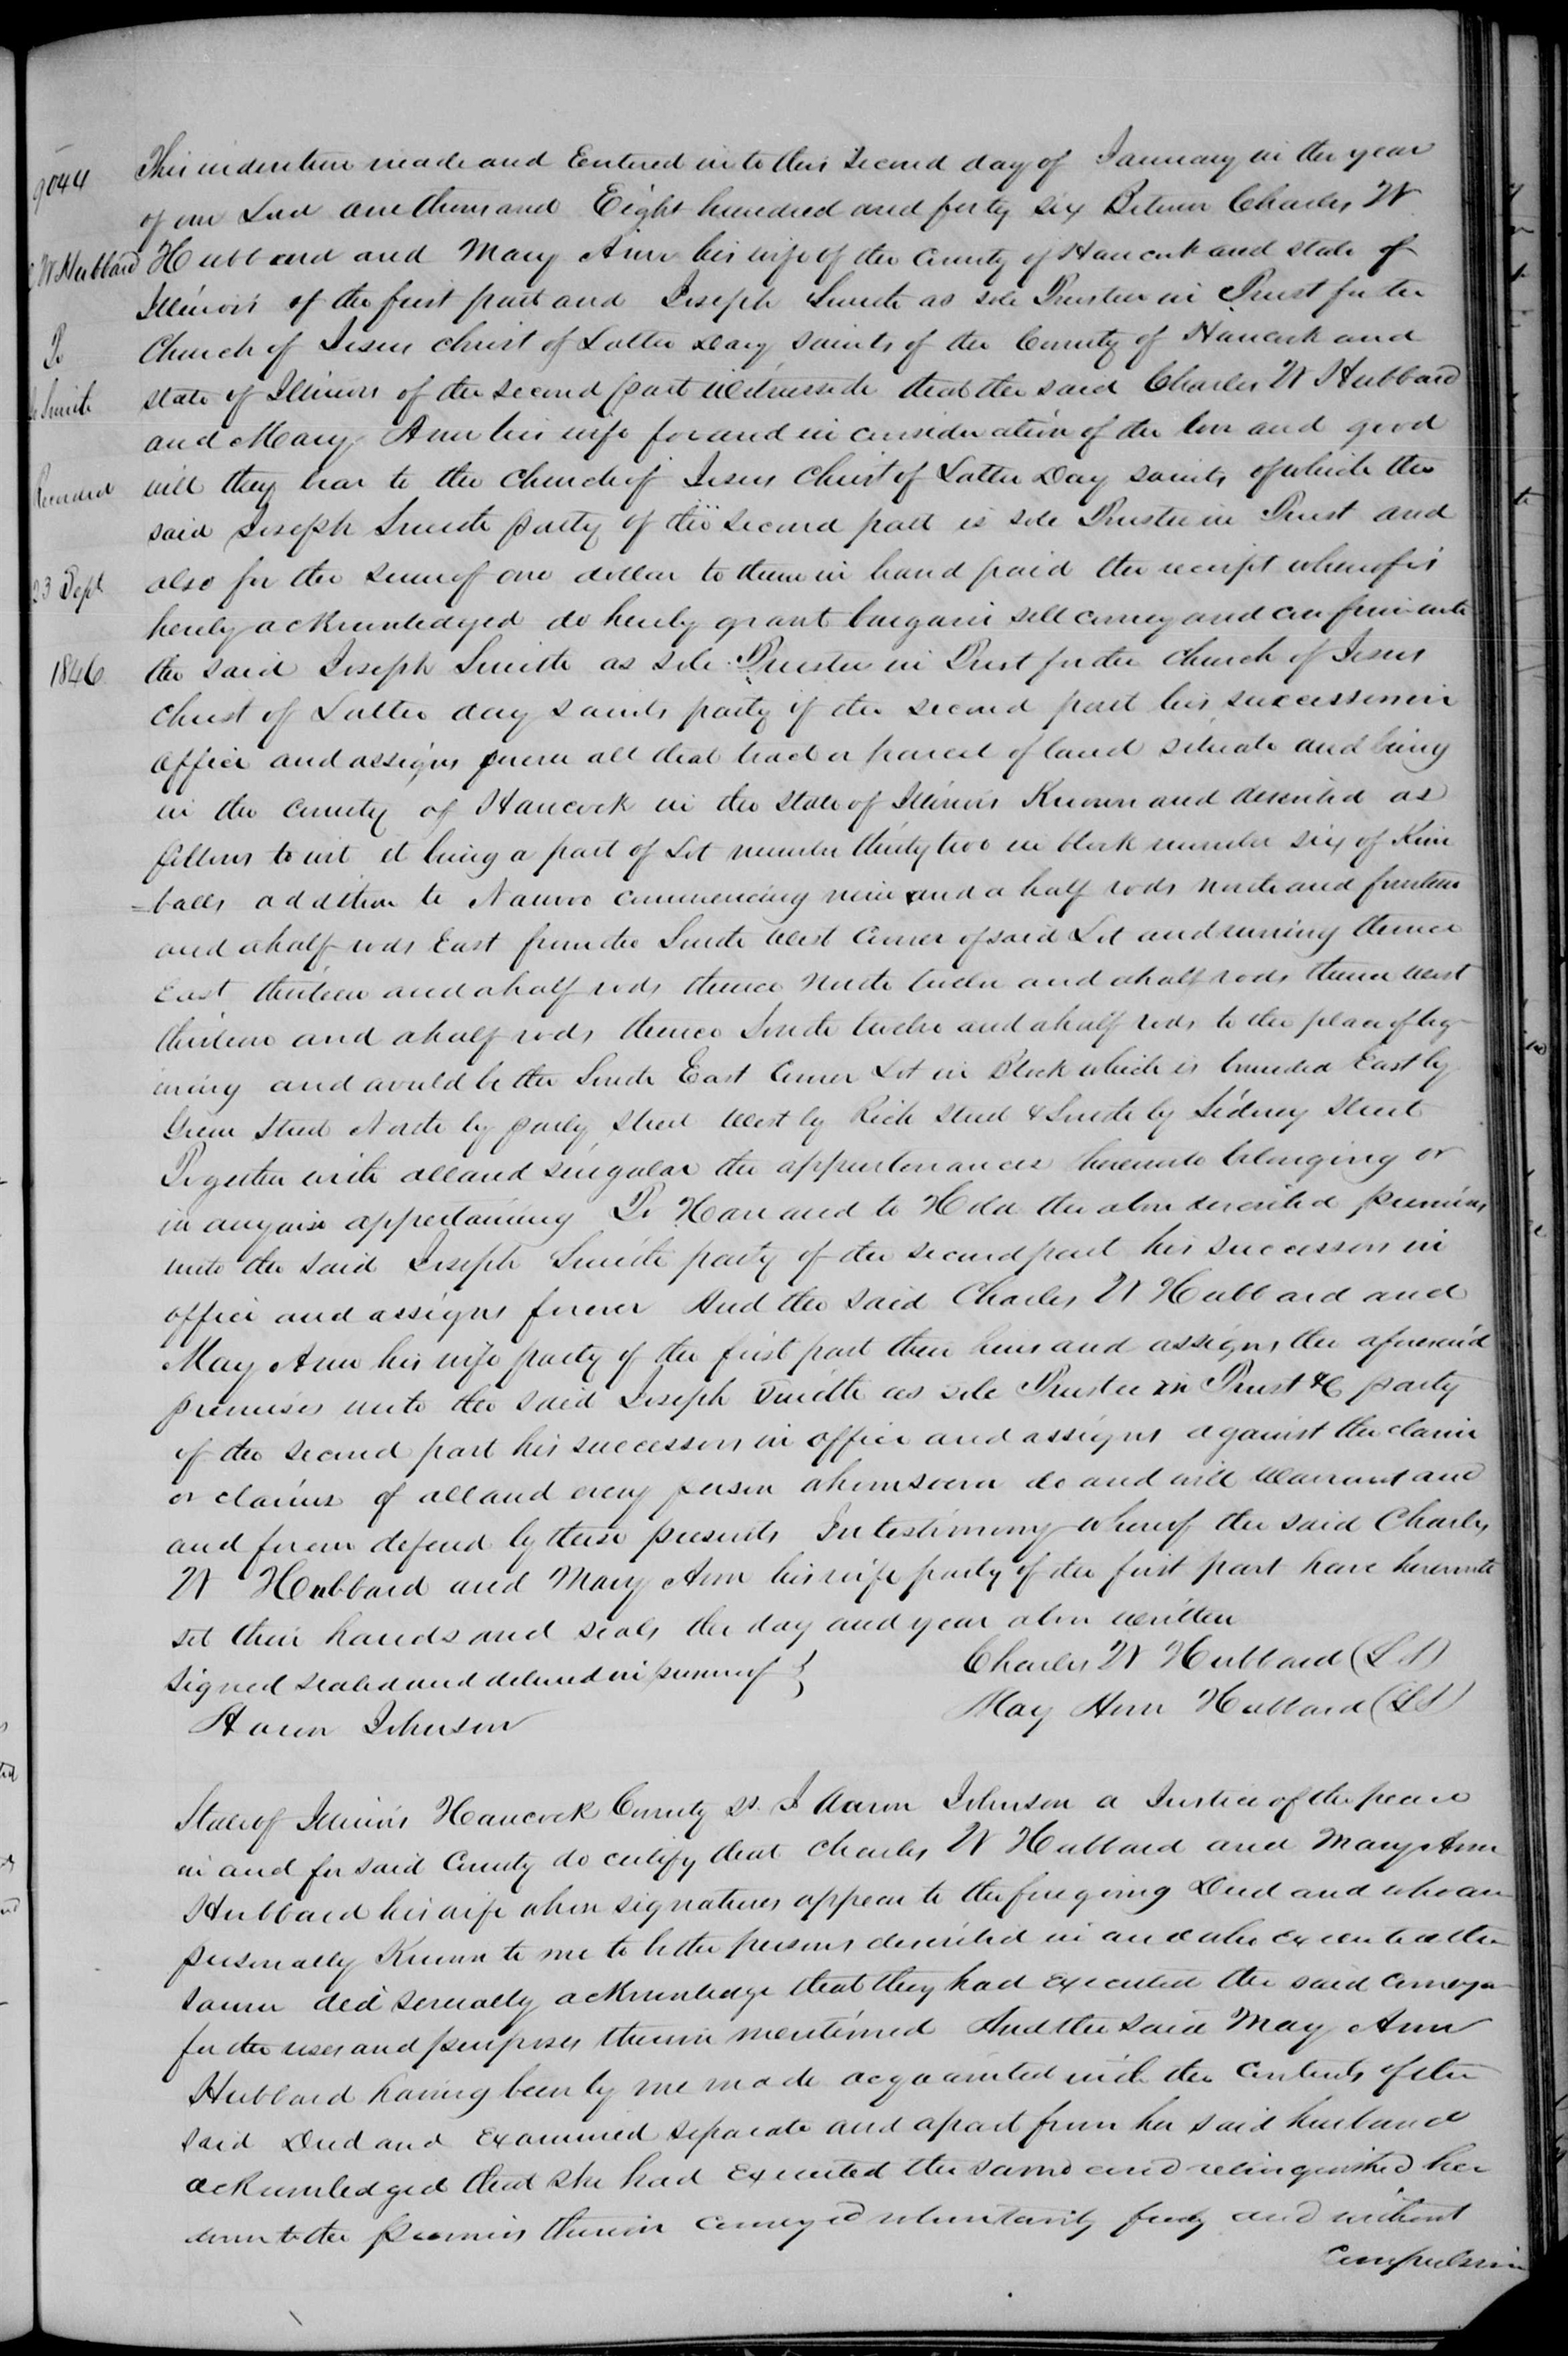 9044
W Hubbard
To
Smith
Recorded
23 Sept
1846
This indenture made and Entered into this Second day of January in the year
of our Lord one thousand Eight hundred and forty six Between Charles W
Hubbard and Mary Ann his wife of the County of Hancock and state of
Illinois of the first part and Joseph Smith as sole Trustee in Trust for the
Church of Jesus christ of Latter Day saints of the County of Hancock and
state of Illinois of the second part witnesseth that the said Charles W Hubbard
and Mary Ann his wife for and in consideration of the love and good
will they bear to the Church of Jesus Christ of Latter Day saints of which the
said Joseph Smith party of the second part is sole Trustee in Trust and
also for the sum of one dollar to them in hand paid the receipt whereof is
hereby acknowledged do hereby grant bargain sell convey and confirm unto
the said Joseph Smith as sole Trustee in Trust for the Church of Jesus
Christ of Latter day saints party of the second part his successors in
office and assigns forever all that tract or parcel of land situate and being
in the County of Hancock in the State of Illinois Known and described as
follows to wit it being a part of Lot number thirty two in block number six of Kim
=balls addition to Nauvoo commencing nine and a half rods north and fourteen
and a half rods East from the South West Corner of said Lot and runing thence
East thirteen and a half rods thence North twelve and a half rods thence West
thirteen and a half rods thence South twelve and a half rods to the place of beg-
inning and would be the South East Corner Lot in Block which is bounded East by
Green Street North by parly Street West by Rich Street & South by Sidney Street
Together with all and singular the appurtenances thereunto belonging or
in anywise appertaining To Have and to Hold the above described premises
unto the said Joseph Smith party of the second part his successors in
office and assigns forever And the said Charles W Hubbard and
May Ann his wife party of the first part their heirs and assigns the aforesaid
premises unto the said Joseph Smith as sole Trustee in Trust &c party
of the second part his successors in office and assigns against the claim
or claims of all and every person whomsoever do and will Warrant and
and forever defend by these presents In testimony whereof the said Charles
W Hubbard and Mary Ann his wife party of the first part have hereunto
set their hands and seals the day and year above written
signed sealed and delivered in presence of } Charles W Hubbard (LS)
Aaron Johnson May Ann Hubbard (LS)
State of Illinois Hancock County ss. I Aaron Johnson a Justice of the peace
in and for said County do certify that Charles W Hubbard and Mary Ann
Hubbard his wife whose signatures appear to the foregoing Deed and who are
personally Known to me to be the persons described in and who executed the
same did severally acknowledge that they had Executed the said conveya-
for the uses and purposes therein mentioned And the said May Ann
Hubbard having been by me made acquainted with the contents of the
said Deed and Examined separate and apart from her said husband
acknowledged that she had Executed the same and relinquished her
dower to the premises therein conveyed voluntarily freely and without
Compulsion